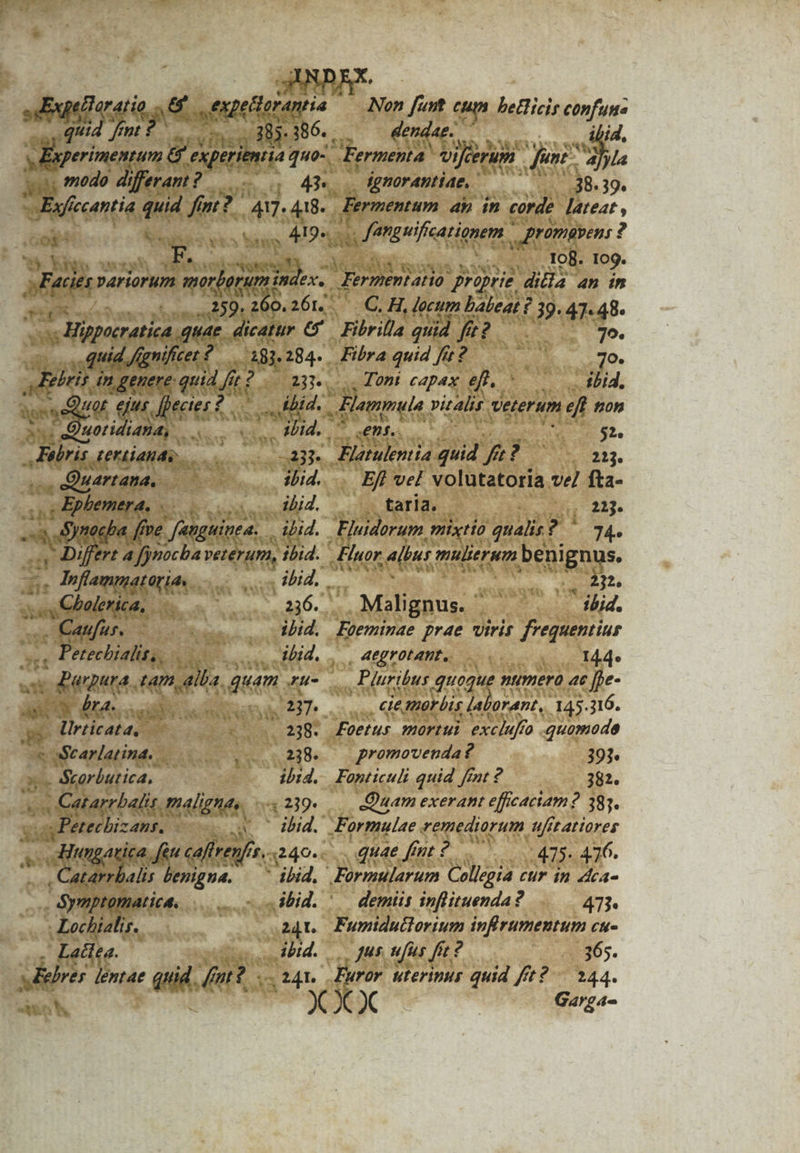 INDEX.
Expectoratio & expectorantia
quid ſint? 385. 386.
Experimentum & experientia quo-
modo differant? 43.
Exſiccantia quid ſint? 417. 418.
419.
F.
Facies variorum morborum index.
259. 260. 261.
Hippocratica quae dicatur &
quid ſignificet? 283. 284.
Febris in genere quid ſit? 233.
Quot ejus ſpecies? ibid.
Quotidiana, ibid.
Febris tertiana. 233.
Quartana. ibid.
Ephemera. ibid.
Synocha ſive ſanguinea. ibid.
Differt a ſynocha veterum, ibid.
Inflammatoria. ibid.
Cholerica. 236.
Cauſus. ibid.
Petechialis. ibid.
Purpura tam alba quam ru-
bra. 237.
Urticata. 238.
Scarlatina. 238.
Scorbutica. ibid.
Catarrhalis maligna. 239.
Petechizans. ibid.
Hungarica ſeu caſtrenſis. 240.
Catarrhalis benigna. ibid.
Symptomatica. ibid.
Lochialis. 241.
Lactea. ibid.
Febres lentae quid ſint? 241.
Non ſunt cum hecticis confun-
dendae. ibid.
Fermenta viſcerum ſunt aſyla
ignorantiae. 38. 39.
Fermentum an in corde lateat,
ſanguificationem promovens?
108. 109.
Fermentatio proprie dicta an in
C. H. locum habeat? 39. 47. 48.
Fibrilla quid ſit? 70.
Fibra quid ſit? 70.
Toni capax eſt. ibid.
Flammula vitalis veterum eſt non
ens. 52.
Flatulentia quid ſit? 223.
Eſt vel volutatoria vel ſta-
taria. 223.
Fluidorum mixtio qualis? 74.
Fluor albus mulierum benignus.
232.
Malignus. ibid.
Foeminae prae viris frequentius
aegrotant. 144.
Pluribus quoque numero ac ſpe-
cie morbis laborant. 145. 316.
Foetus mortui excluſio quomodo
promovenda? 393.
Fonticuli quid ſint? 382.
Quam exerant efficaciam? 383.
Formulae remediorum uſitatiores
quae ſint? 475. 476.
Formularum Collegia cur in Aca-
demiis inſtituenda? 473.
Fumiductorium inſtrumentum cu-
jus uſus ſit? 365.
Furor uterinus quid ſit? 244.
)( )( )( Garga-